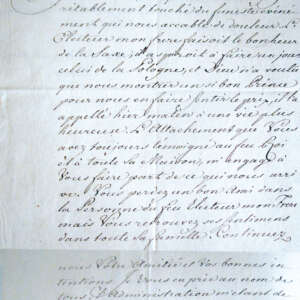 ritablement touché du funeste évène-
ment qui nous accable de douleur. L'
Electeur mon frere faisoit le bonheur
de la Saxe, il aspiroit à faire un jour
celui de la Pologne, et Dieu n'a voulu
que nous montrer un si bon Prince
pour nous en faire sentir le prix, il l'a
appellé hier matin à une vie plus
heureuse. L'Attachement que Vous
avez toujours témoigné au feu Roi
et à toute sa Maison, m'engage à
Vous faire part de ce qui nous arri-
ve. Vous perdez un bon Ami dans
la Personne du feu Electeur mon Frere
mais Vous retrouvez ses sentimens
dans toute sa famille. Continuez
nous Votre Amitié et Vos bonnes in-
tentions. Je Vous en prie au nom de
tous. L'administration m'étant de